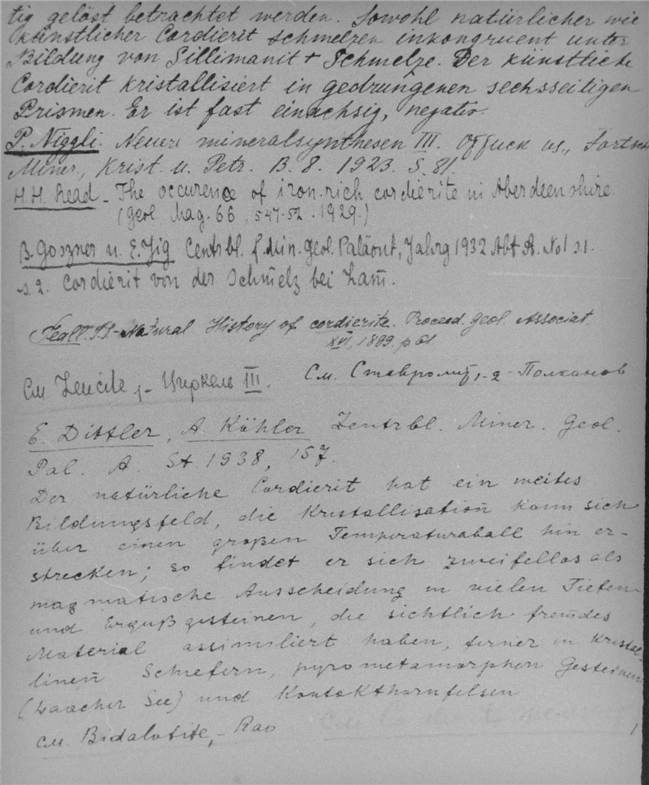 tig gelöst betrachtet werden. Sowohl natürlicher wie
künstlicher Cordierit schmelzen inkongruent unter
Bildung von Sillimanit + Schmelze. Der künstliche
Cordierit kristallisiert in gedrungenen sechsseitigen
Prismen. Er ist fast einachsig, negativ.
P. Niggli. Neuere mineralsynthesen III. us., Fortsch
Miner., Krist. u. Petr. B. 8. 1923. S. 81
H.H. Read - The occurence of iron-rich cordierite in Aberdeenshire.
(Geol. Mag. 66, 547-52. 1929.)
B. Goszner u. E. Jig Centrbl. f. Min. geol. Paläont, Jahrg 1932 Abt A. No 1 S. 1.
S. 2. Cordierit von der Schmelz bei Lam.
Natural History of cordierite. Proceed. geol. Associat.
XVI, 1899. p 61
См. Leucite, - Циркель III. См. - Полканов
E. Dittler, A. Köhler Zentrbl. Miner. Geol.
Pal. A. St. 1938, 157.
Der natürliche Cordierit hat ein weites
Bildungsfeld, die Kristallisation kann sich
über einen großen Temperaturabfall hin er-
strecken; so findet er sich zweifellos als
magmatische Ausscheidung in vielen Tiefen-
und Ergußgesteinen, die sichtlich fremdes
Material assimiliert haben, ferner in Kristal-
linen Schiefern, pyrometamorphen Gesteinen
(Laacher See) und Kontakthornfelsen
см. Bidalotite, - Rao